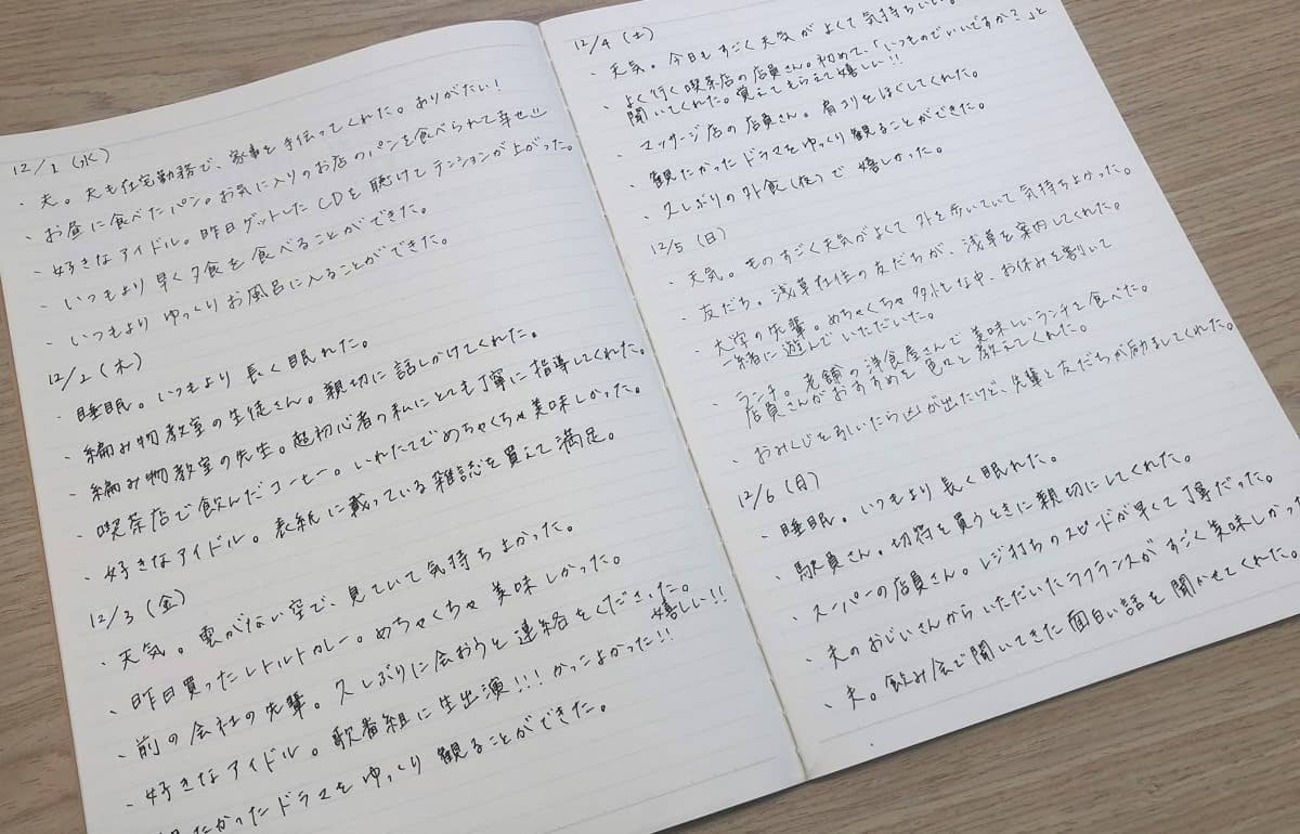 12/1 (水)
・夫。夫も在宅勤務で、家事を手伝ってくれた。ありがたい！
・お昼に食べたパン。お気に入りのお店のパンを食べられて幸せ
・好きなアイドル。昨日ゲットしたCDを聴けてテンションが上がった。
・いつもより早く夕食を食べることができた。
・いつもよりゆっくりお風呂に入ることができた。
12/2 (木)
・睡眠。いつもより長く眠れた。
・編み物教室の生徒さん。親切に話しかけてくれた。
・編み物教室の先生。超初心者の私にとても丁寧に指導してくれた。
・喫茶店で飲んだコーヒー。いれたてでめちゃくちゃ美味しかった。
・好きなアイドル。表紙に載っている雑誌を買えて満足。
12/3 (金)
・天気。雲がない空で、見ていて気持ちよかった。
・昨日買ったレトルトカレー。めちゃくちゃ美味しかった。
・前の会社の先輩。久しぶりに会おうと連絡をくださった。嬉しい!!
・好きなアイドル。歌番組に生出演!!!かっこよかった!!
たかったドラマをゆっくり観ることができた。
12/4 (土)
・天気。今日もすごく天気がよくて気持ちいい。
・よく行く喫茶店の店員さん。初めて、「いつものでいいですか？」と
聞いてくれた。覚えてもらえて嬉しい!!
・マッサージ店の店員さん。肩コリをほぐしてくれた。
・観たかったドラマをゆっくり観ることができた。
・久しぶりの外食(夜)で嬉しかった。
12/5 (日)
・天気。ものすごく天気がよくて外を歩いていて気持ちよかった。
・友だち。浅草在住の友だちが、浅草を案内してくれた。
・大学の先輩。めちゃくちゃ多忙な中、お休みを割いて
一緒に遊んでいただいた。
・ランチ。老舗の洋食屋さんで美味しいランチを食べた。
店員さんがおすすめを色々と教えてくれた。
・おみくじを引いたら凶が出たけど、先輩と友だちが励ましてくれた。
12/6 (月)
・睡眠。いつもより長く眠れた。
・駅員さん。切符を買うときに親切にしてくれた。
・スーパーの店員さん。レジ打ちのスピードが早くて丁寧だった。
・夫のおじいさんからいただいたラフランスがすごく美味しかった
・夫。飲み会で聞いてきた面白い話を聞かせてくれた。